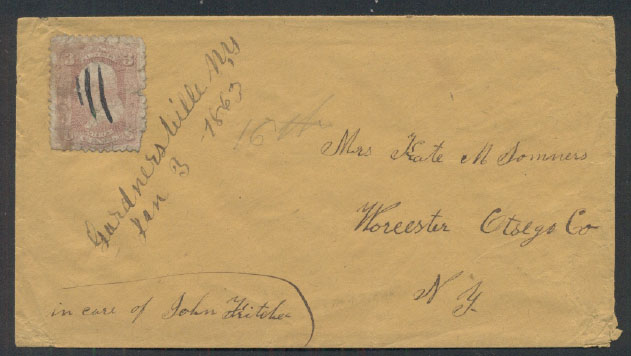 3 3
Gardnersville NY
Jan 3 1863
Mrs Kate M Somners
Worcester Otsego Co
N Y.
in care of John